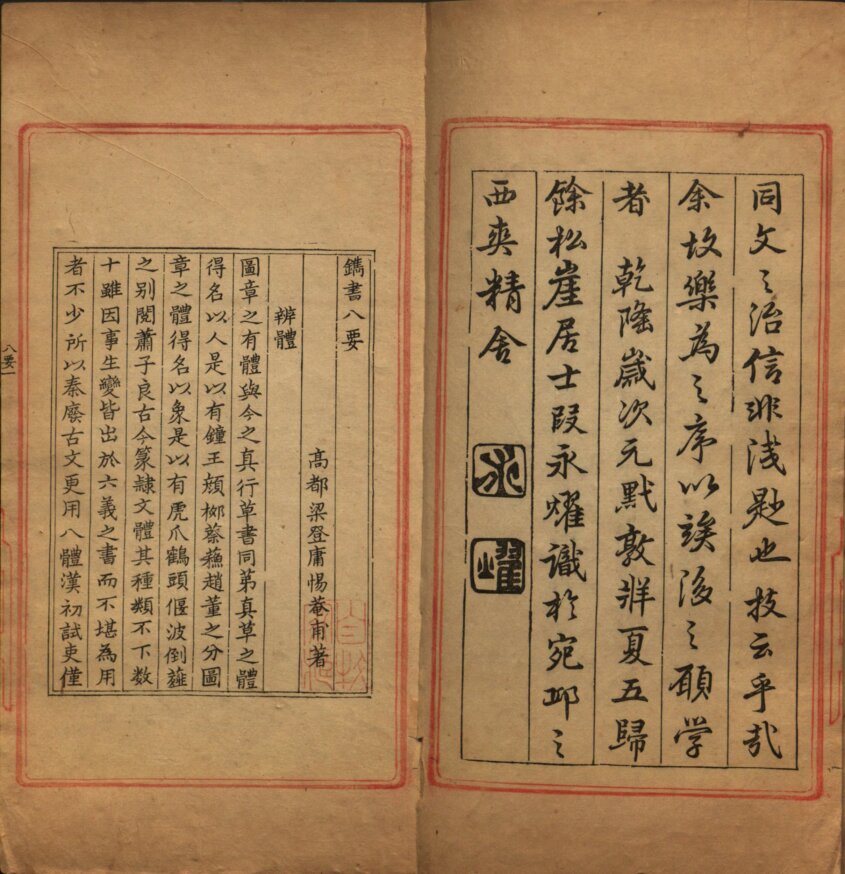 同文之治信非淺尟也技云乎哉
余故樂為之序以俟後之願学
者　乾隆歲次元黓敦牂夏五歸
餘松崖居士段永燿識於宛邱之
西爽精舍
永
燿
鐫書八要
高都梁登庸惕菴甫著
辨體
圖章之有體與今之真行草書同第真草之體
得名以人是以有鐘王顔栁蔡蘓趙董之分圖
章之體得名以象是以有虎爪鶴頭偃波倒薤
之别閱蕭子良古今篆隸文體其種類不下數
十雖因事生變皆出於六義之書而不堪為用
者不少所以秦廢古文更用八體漢初試吏僅
八要一